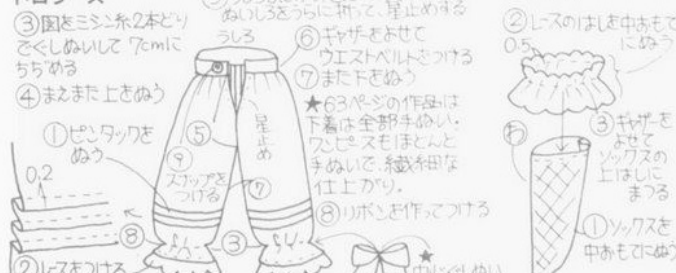 ③図をミシン糸2本どり
でぐしぬいして 7cmに
ちぢめる
④まえまた上をぬう
①ピンタックを
ぬう
0.2
②レースをつける
ぬいしろをうらに折って、星止めする
うしろ
⑥ギャザーをよせて
ウエストベルトをつける
⑦また下をぬう
★63ページの作品は
下着は全部手ぬい。
ワンピースもほとんど
手ぬいで、繊細な
仕上がり。
⑧リボンを作ってつける
⑤
星止め
⑨
スナップを
つける
⑦
⑧
③
★
②レースのはしを中おもて
にぬう
0.5
③ギャザーを
よせて
ソックスの
上はしに
まつる
わ
①ソックスを
中おもてにぬう